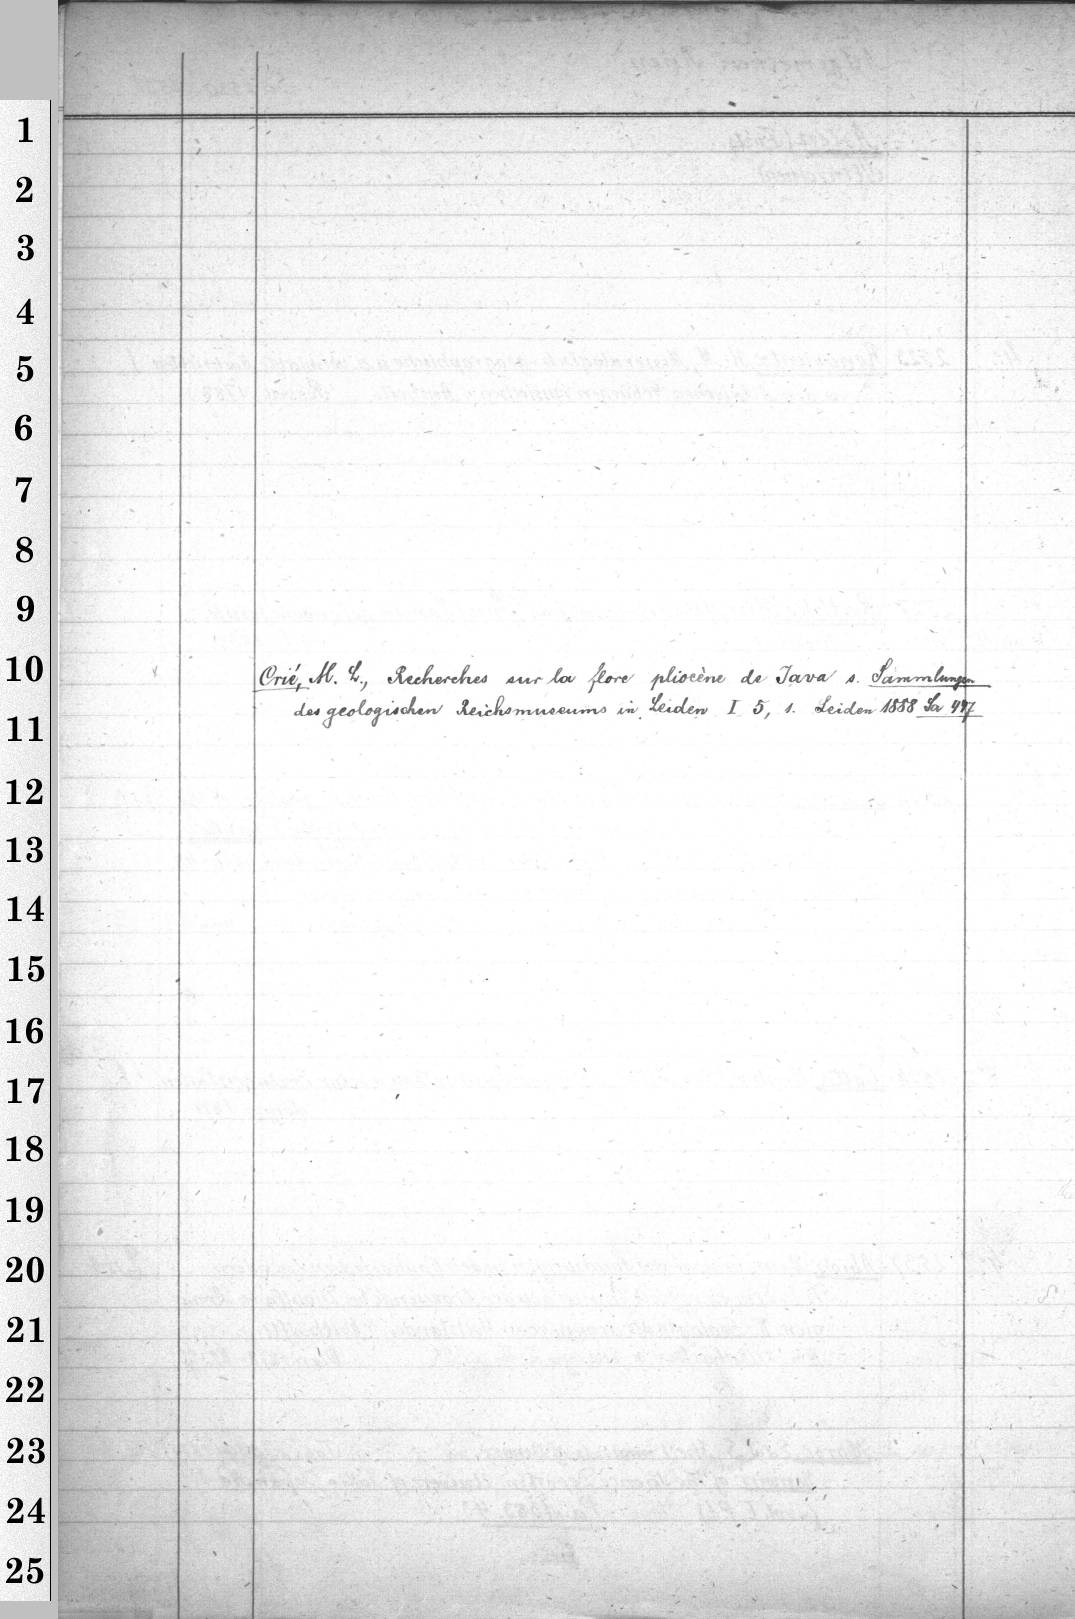 1
2
3
4
5
6
7
8
9
10
Crié, M. L., Recherches sur la flore pliocène de Java s. Sammlungen
des geologischen Reichsmuseums in Leiden I 5, s. Leiden 1888 Sa 497
11
12
13
14
15
16
17
18
19
20
21
22
23
24
25